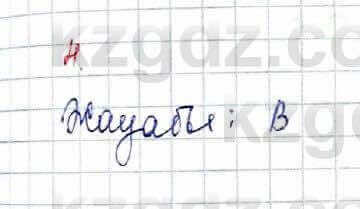 4.
Жауабы: В
kzgdz.com